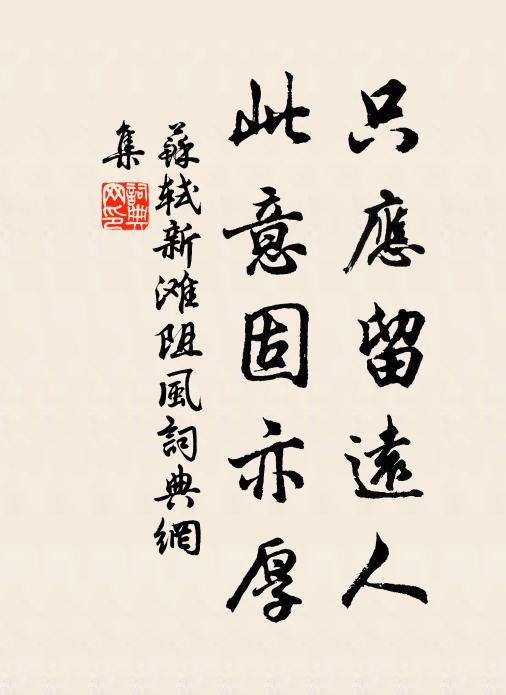 只應留遠人
此意固亦厚
蘇軾新滩阻風詞典網
集
詞典網印